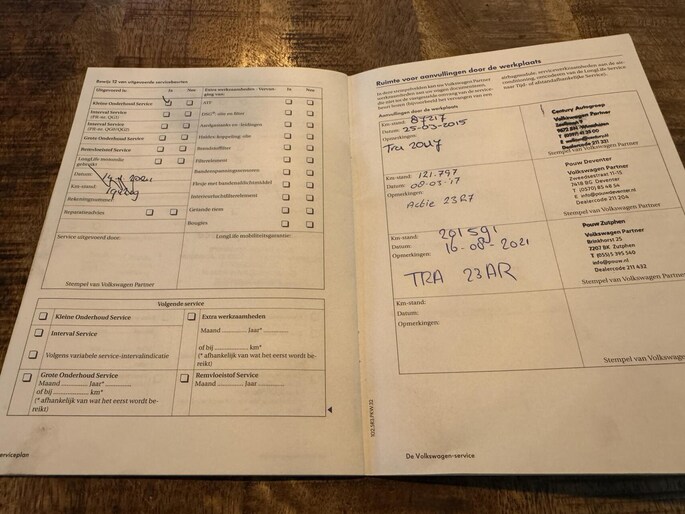 Bewijs 12 van uitgevoerde servicebeurten
Uitgevoerd is:
Ja
Nee
Extra werkzaamheden - Vervanging van:
Ja
Nee
Kleine Onderhoud Service
Interval Service
(PR-nr. QG1)
Interval Service
(PR-nr. QG0/QG2)
Grote Onderhoud Service
Remvloeistof Service
LongLife motorolie
gebruikt
Datum:
2021
Km-stand:
Rekeningnummer
Reparatieadvies
ATF
DSG®-olie en filter
Aardgastanks en -leidingen
Haldex-koppeling: olie
Brandstoffilter
Filterelement
Bandenspanningssensoren
Flesje met bandenafdichtmiddel
Interieurluchtfilterelement
Getande riem
Bougies
Service uitgevoerd door:
Stempel van Volkswagen Partner
LongLife mobiliteitsgarantie:
Volgende service
Kleine Onderhoud Service
Interval Service
Volgens variabele service-intervalindicatie
Extra werkzaamheden
Maand ............ Jaar*............
of bij ............ km*
(* afhankelijk van wat het eerst wordt bereikt)
Grote Onderhoud Service
Maand ............ Jaar*............
of bij ............ km*
(* afhankelijk van wat het eerst wordt bereikt)
Remvloeistof Service
Maand ............ Jaar ............
serviceplan
Ruimte voor aanvullingen door de werkplaats
Aanvullingen door de werkplaats:
Km-stand: 87217
Datum: 25-03-2015
Opmerkingen:
Century Autogroep
Stempel van Volkswagen Partner
Km-stand: 121.797
Datum: 08-03-'17
Opmerkingen:
Actie 23R7
Pouw Deventer
Volkswagen Partner
Zweedsestraat 11-15
7418 BG Deventer
T (0570) 85 48 54
E info@pouwdeventer.nl
Dealercode 211 204
Stempel van Volkswagen Partner
Km-stand: 201591
Datum: 16-08-2021
Opmerkingen:
TRA 23AR
Pouw Zutphen
Volkswagen Partner
Brinkhorst 25
7207 BK Zutphen
T (055) 5 395 540
info@pouw.nl
Dealercode 211 432
Stempel van Volkswagen Partner
Km-stand:
Datum:
Opmerkingen:
Stempel van Volkswagen
De Volkswagen-service